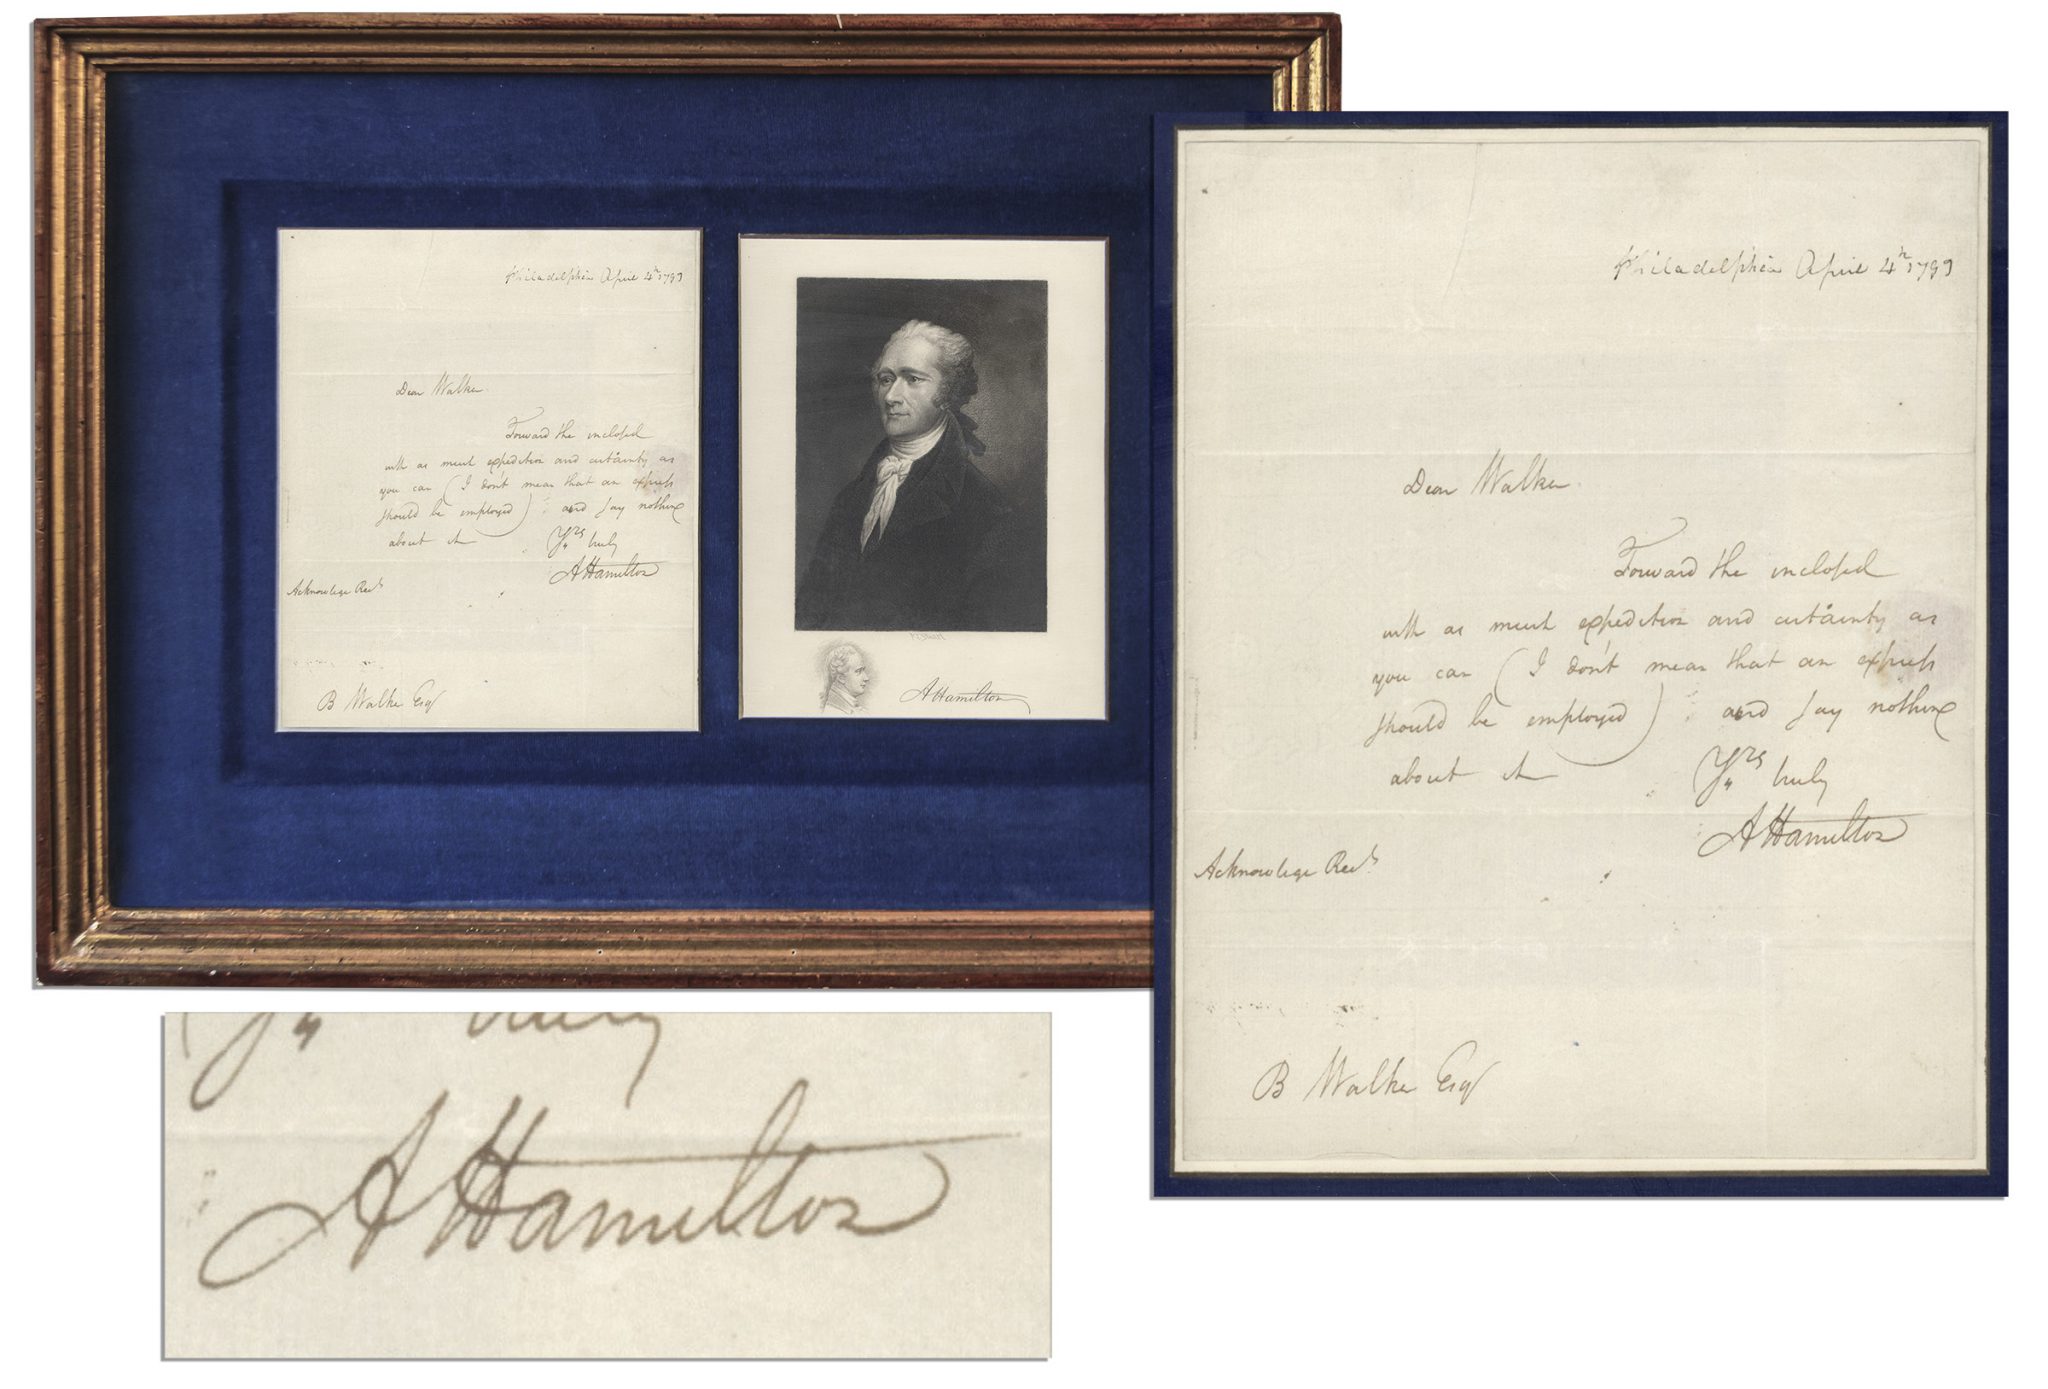 Philadelphia April 4th 1793
Dear Walker
Forward the inclosed
with as much expedition and certainty as
you can (I don't mean that an express
should be employed) and say nothing
about it Yrs truly
A Hamilton
Acknowlege Rect
B Walker Esqr
A Hamilton
Philadelphia April 4th 1793
Dear Walker
Forward the inclosed
with as much expedition and certainty as
you can (I don't mean that an express
should be employed) and say nothing
about it
Yrs truly
A Hamilton
Acknowlege Rect
B Walker Esqr
Yrs truly
A Hamilton